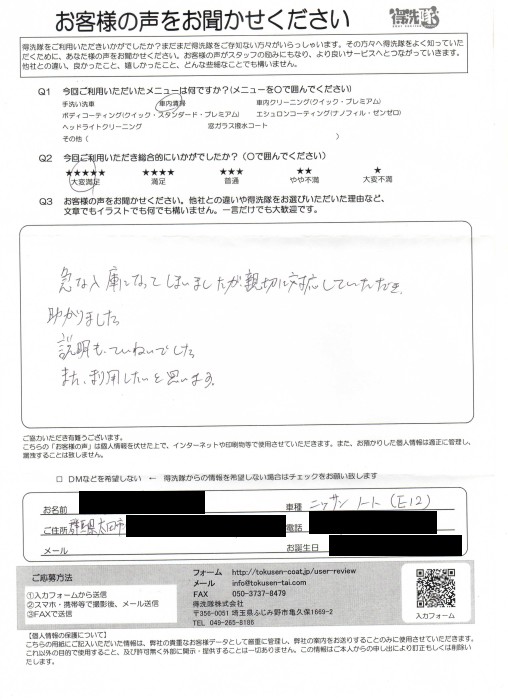 お客様の声をお聞かせください
得洗隊
得洗隊をご利用いただきいかがでしたか？まだまだ得洗隊をご存知ない方々がいらっしゃいます。その方々へ得洗隊をよく知っていた
だくために、あなた様の声をお聞かせください。お客様の声がスタッフの励みにもなり、より良いサービスへとつながっていきます。
他社との違い、良かったこと、嬉しかったこと、どんな些細なことでも構いません。
Q1 今回ご利用いただいたメニューは何ですか？(メニューを○で囲んでください)
手洗い洗車 車内清掃 車内クリーニング(クイック・プレミアム)
ボディコーティング(クイック・スタンダード・プレミアム) エシュロンコーティング(ナノフィル・ゼンゼロ)
ヘッドライトクリーニング 窓ガラス撥水コート
その他( )
Q2 今回ご利用いただき総合的にいかがでしたか？(○で囲んでください)
★★★★★ ★★★★ ★★★ ★★ ★
大変満足 満足 普通 やや不満 大変不満
Q3 お客様の声をお聞かせください。他社との違いや得洗隊をお選びいただいた理由など、
文章でもイラストでも何でも構いません。一言だけでも大歓迎です。
急な入庫になってしまいましたが、親切に対応していただき、
助かりました
説明も、ていねいでした
また、利用したいと思います。
ご協力いただき有難うございます。
こちらの「お客様の声」は個人情報を伏せた上で、インターネットや印刷物等で使用させていただきます。また、お預かりした個人情報は適正に管理し、
漏洩することは致しません。
□ DMなどを希望しない ← 得洗隊からの情報を希望しない場合はチェックをお願い致します
お名前 車種 ニッサン ノート (E12)
ご住所 群馬県太田市 電話
メール お誕生日
ご応募方法
①入力フォームから送信
②スマホ・携帯等で撮影後、メール送信
③FAXで送信
フォーム http://tokusen-coat.jp/user-review
メール info@tokusen-tai.com
FAX 050-3737-8479
得洗隊株式会社
〒356-0051 埼玉県ふじみ野市亀久保1669-2
TEL 049-265-6186
入力フォーム
【個人情報の保護について】
こちらの用紙にご記入いただいた情報は、弊社の貴重なお客様データとして厳重に管理し、弊社の案内をお送りすることのみに使用させていただきます。
これ以外の目的で使用すること、及び許可無く外部に開示・提供することは一切ありません。この情報はご本人からの申し出により訂正もしくは削除い
たします。